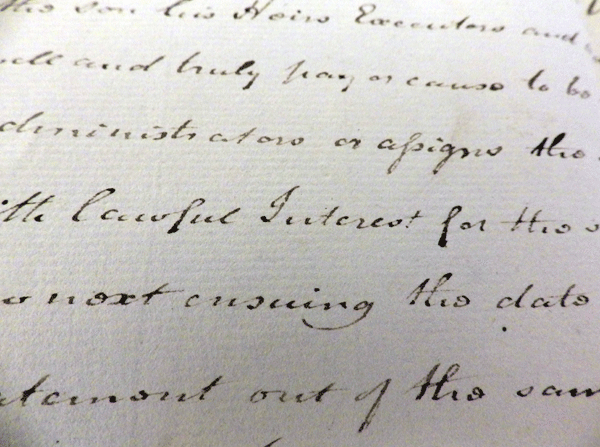 the son his Heirs Executors and
well and truly pay or cause to be
dministrators or assigns the
ith lawful Interest for the s
next ensuing the date
atement out of the sam